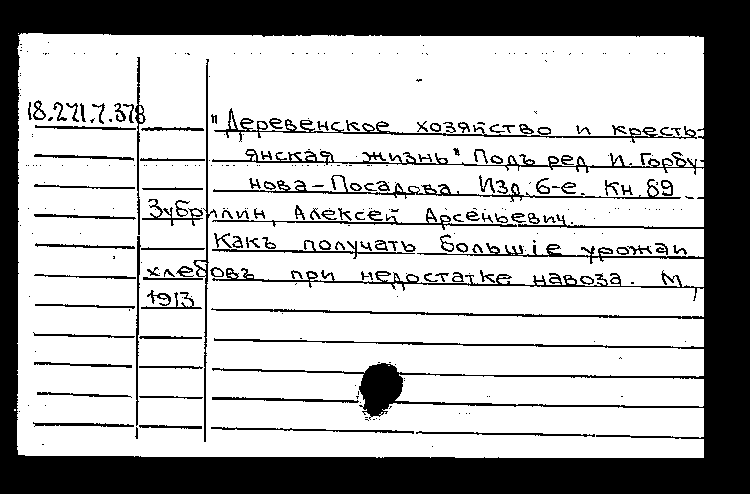 18.271.7.378
"Деревенское хозяйство и кресть-
янская жизнь" Подъ ред. И. Горбу-
нова-Посадова. Изд. 6-е. Кн. 89
Зубрилин, Алексей Арсеньевич.
Какъ получать большiе урожаи
хлебовъ при недостатке навоза. М.,
1913